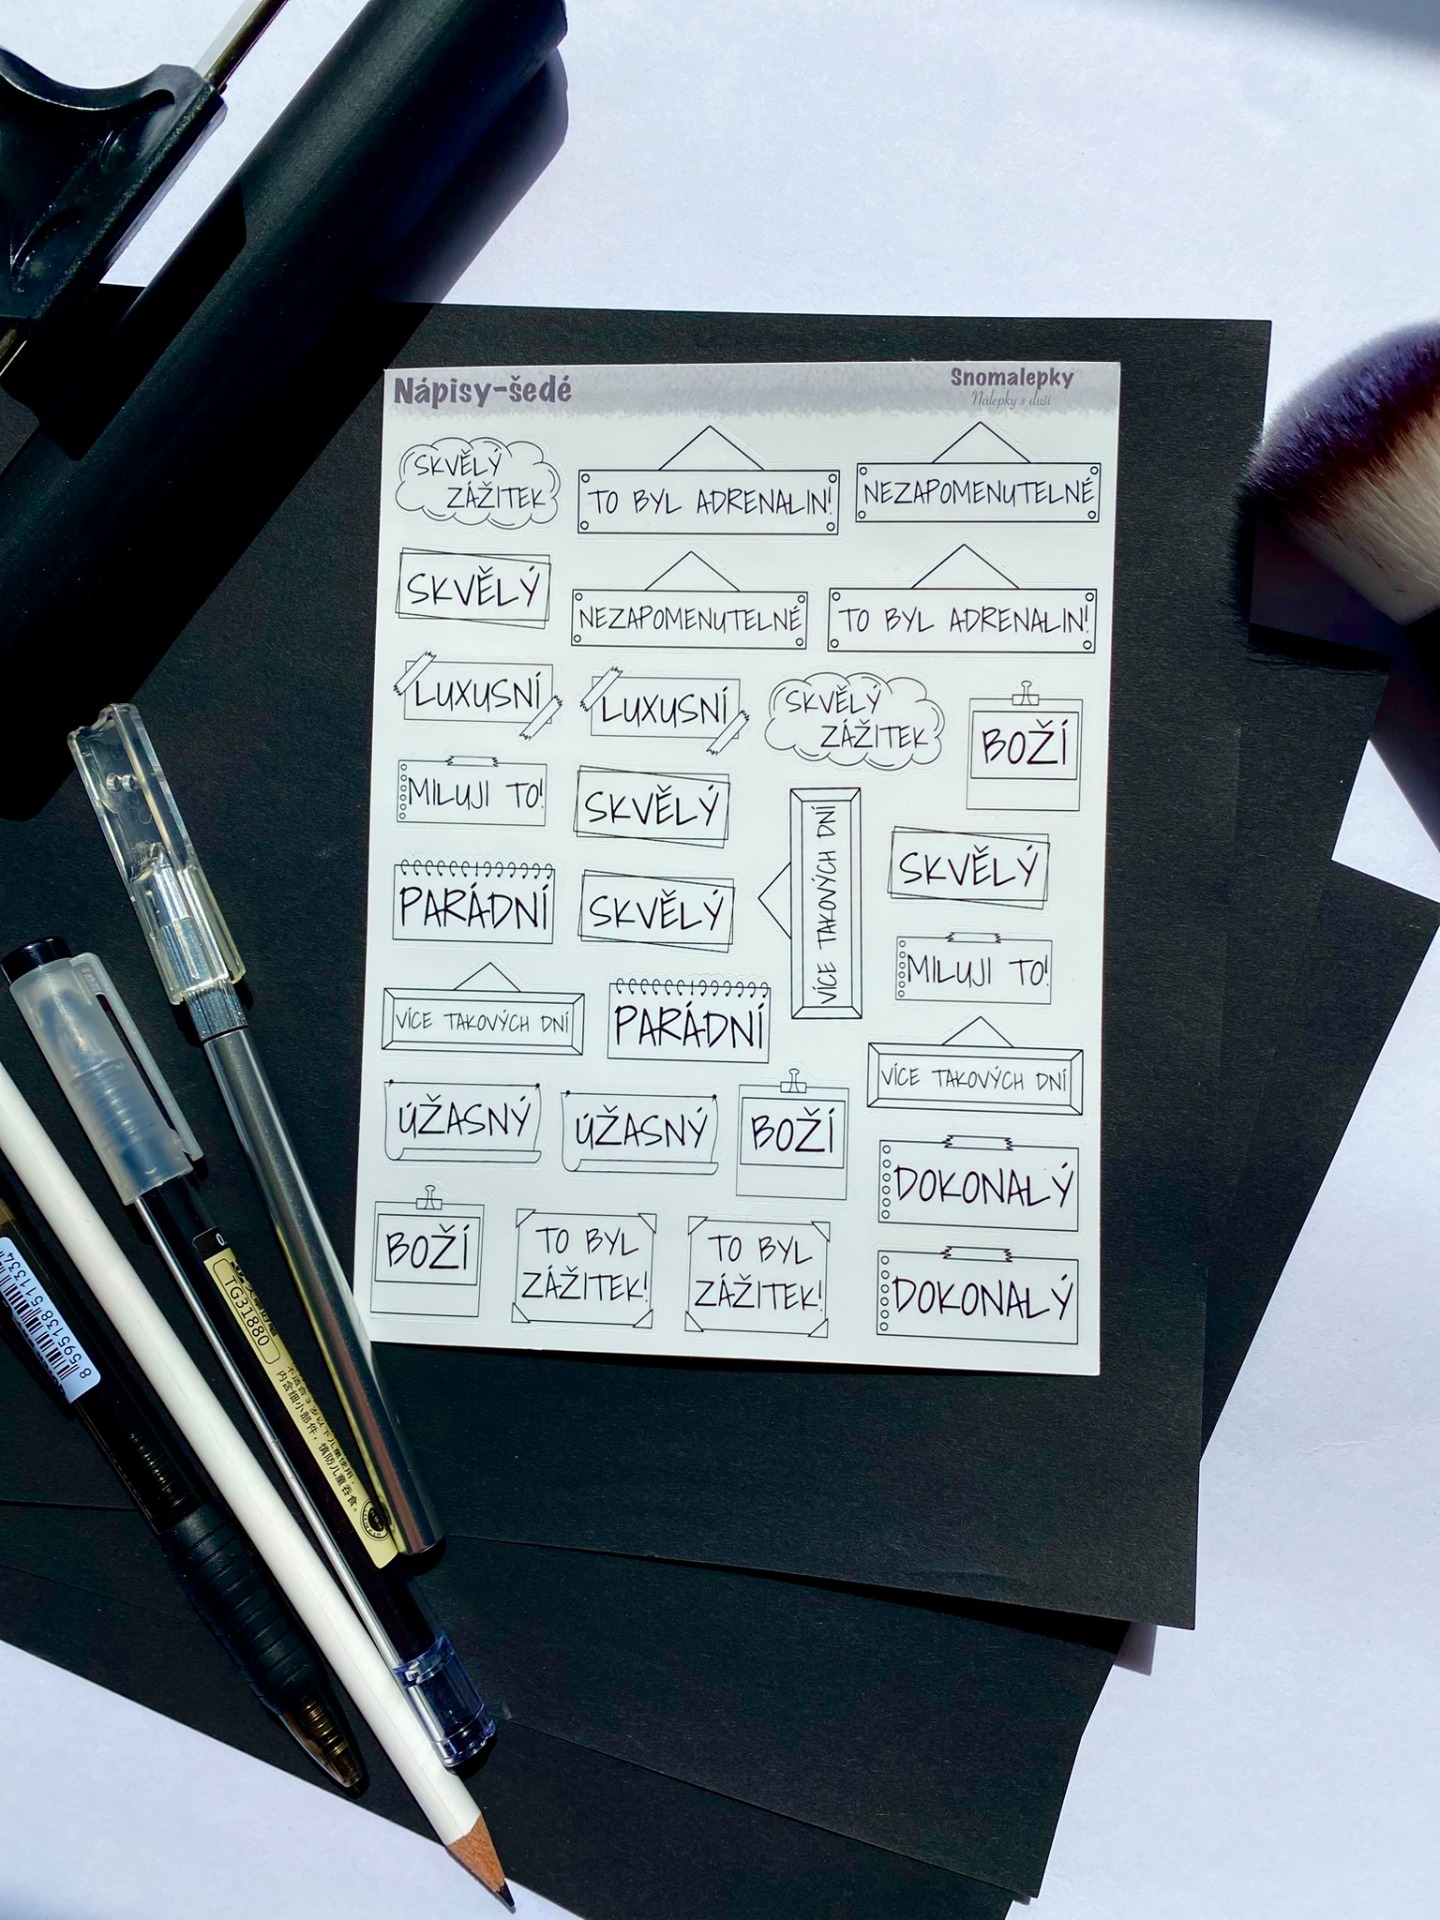 Nápisy-šedé
Snomalepky
Nálepky s duší
SKVĚLÝ
ZÁŽITEK
TO BYL ADRENALIN!
NEZAPOMENUTELNÉ
SKVĚLÝ
NEZAPOMENUTELNÉ
TO BYL ADRENALIN!
LUXUSNÍ
LUXUSNÍ
SKVĚLÝ
ZÁŽITEK
BOŽÍ
MILUJI TO!
SKVĚLÝ
VÍCE TAKOVÝCH DNÍ
SKVĚLÝ
PARÁDNÍ
SKVĚLÝ
MILUJI TO!
VÍCE TAKOVÝCH DNÍ
PARÁDNÍ
VÍCE TAKOVÝCH DNÍ
ÚŽASNÝ
ÚŽASNÝ
BOŽÍ
DOKONALÝ
BOŽÍ
TO BYL
ZÁŽITEK!
TO BYL
ZÁŽITEK!
DOKONALÝ
TG31880
内含细小部件，慎防儿童吞食。